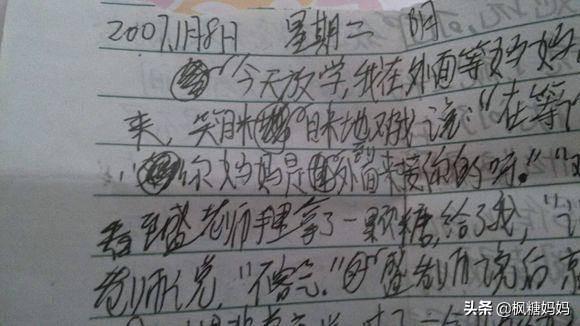 2007,11月8日 星期二 阴
"今天放学,我在外面等妈妈,
来,笑眯眯地对我说:"在等
你妈妈是到外面来接你的呀。"
看到盛老师手里拿了一颗糖,给了我,"
老师说,"不客气。"盛老师说后
头条 @枫糖妈妈